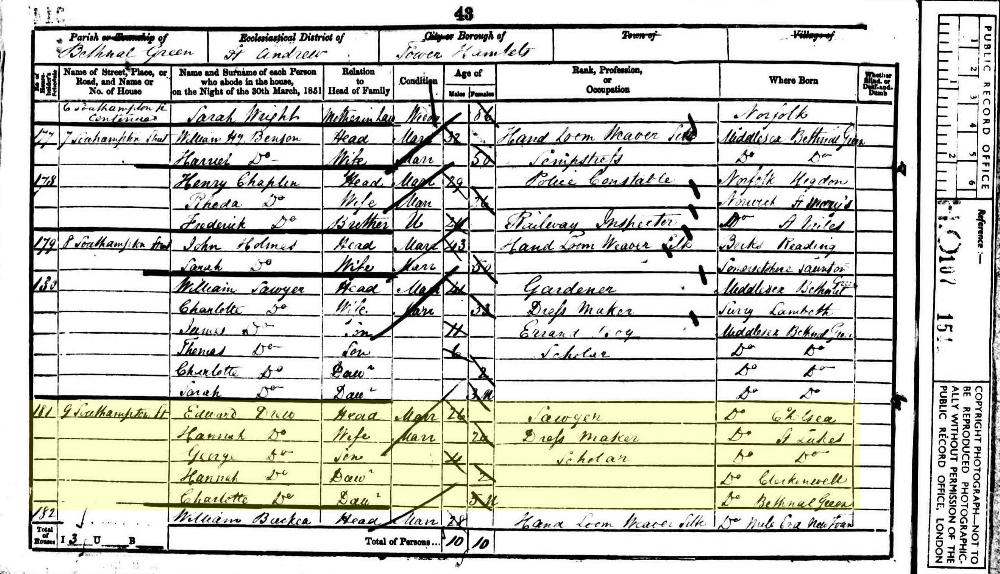 43
Parish or Township of Ecclesiastical District of City or Borough of Town of Village of
Bethnal Green St Andrew Tower Hamlets
Name of Street, Place, or Road, and Name or No. of House Name and Surname of each Person who abode in the house, on the Night of the 30th March, 1851 Relation to Head of Family Condition Age of Males Females Rank, Profession, or Occupation Where Born Whether Blind, or Deaf-and-Dumb
6 Southampton St continued Sarah Wright Mother in Law Widow 86 Norfolk
177 7 Southampton Street William Hy Benson Head Marr 52 Hand Loom Weaver Silk Middlesex Bethnal Green
Harriet Do Wife Marr 50 Sempstress Do Do
178 Henry Chaplin Head Marr 29 Police Constable Norfolk
Do Wife Marr Norwich St Mary's
Frederick Do Brother U Railway Inspector Do
179 8 Southampton Street John Holmes Head Marr 43 Hand Loom Weaver Silk Berks Reading
Sarah Do Wife Marr 50 Somersetshire Taunton
180 William Sawyer Head Marr Gardener Middlesex Bethnal Green
Charlotte Do Wife Marr 33 Dress Maker Surry Lambeth
James Do Son 11 Errand Boy Middlesex Bethnal Green
Thomas Do Son 6 Scholar Do Do
Charlotte Do Daur 2 Do Do
Sarah Do Daur Do Do
181 9 Southampton St Edward Drew Head Marr 26 Sawyer Do Chelsea
Hannah Do Wife Marr Dress Maker Do St Lukes
George Do Son 4 Scholar Do Do
Hannah Do Daur 2 Do Clerkenwell
Charlotte Do Daur Do Bethnal Green
182 William Head Marr 28 Hand Loom Weaver Silk Do Mile End New Town
Total of Houses I 3 U B Total of Persons... 10 10
PUBLIC RECORD OFFICE
1 2 3 4 5 6
Reference :-
H.O. 107
COPYRIGHT PHOTOGRAPH—NOT TO BE REPRODUCED PHOTOGRAPHICALLY WITHOUT PERMISSION OF THE PUBLIC RECORD OFFICE, LONDON